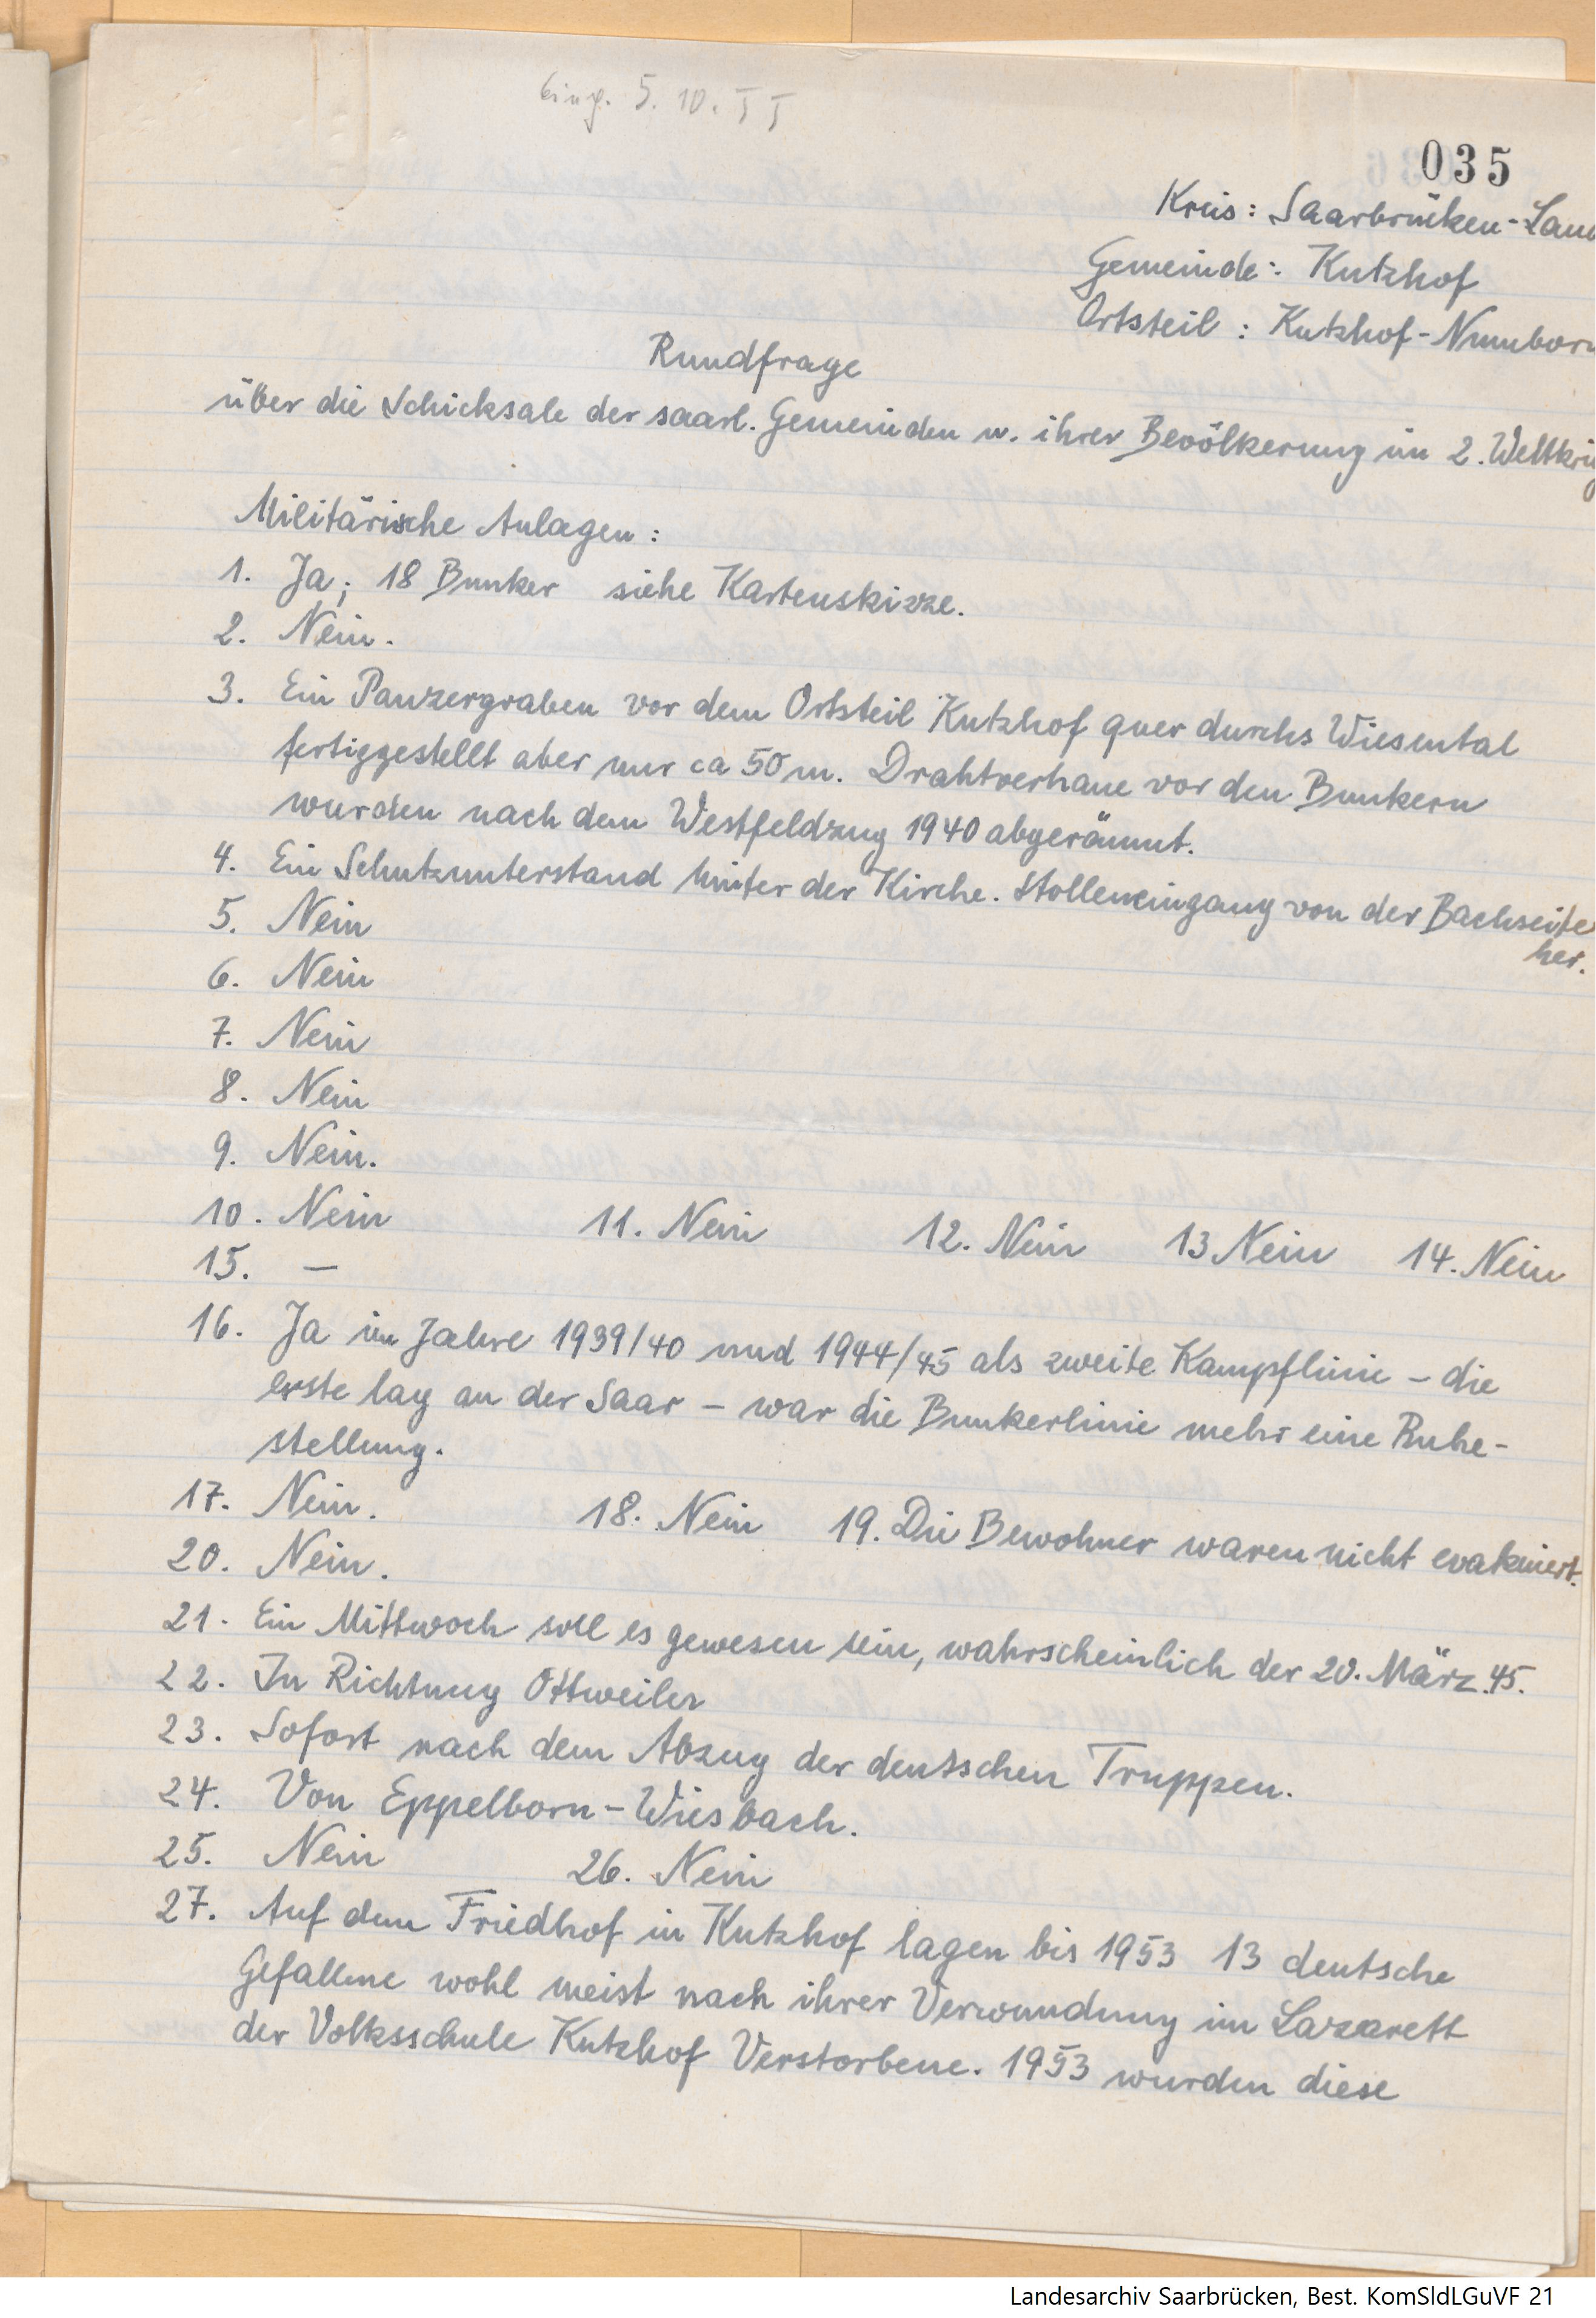 Eing. 5. 10. 55
035
Kreis: Saarbrücken-Land
Gemeinde: Kutzhof
Ortsteil: Kutzhof-Numborn
Rundfrage
über die Schicksale der saarl. Gemeinden u. ihrer Bevölkerung im 2. Weltkrieg
Militärische Anlagen:
1. Ja; 18 Bunker siehe Kartenskizze.
2. Nein.
3. Ein Panzergraben vor dem Ortsteil Kutzhof quer durchs Wiesental
fertiggestellt aber nur ca 50 m. Drahtverhaue vor den Bunkern
wurden nach dem Westfeldzug 1940 abgeräumt.
4. Ein Schutzunterstand hinter der Kirche. Stolleneingang von der Bachseite
her.
5. Nein
6. Nein
7. Nein
8. Nein
9. Nein.
10. Nein 11. Nein 12. Nein 13 Nein 14. Nein
15. —
16. Ja im Jahre 1939/40 und 1944/45 als zweite Kampflinie - die
erste lag an der Saar - war die Bunkerlinie mehr eine Ruhe-
stellung.
17. Nein. 18. Nein 19. Die Bewohner waren nicht evakuiert.
20. Nein.
21. Ein Mittwoch soll es gewesen sein, wahrscheinlich der 20. März. 45.
22. In Richtung Ottweiler
23. Sofort nach dem Abzug der deutschen Truppen.
24. Von Eppelborn-Wiesbach.
25. Nein 26. Nein
27. Auf dem Friedhof in Kutzhof lagen bis 1953 13 deutsche
Gefallene wohl meist nach ihrer Verwundung im Lazarett
der Volksschule Kutzhof Verstorbene. 1953 wurden diese
Landesarchiv Saarbrücken, Best. KomSldLGuVF 21